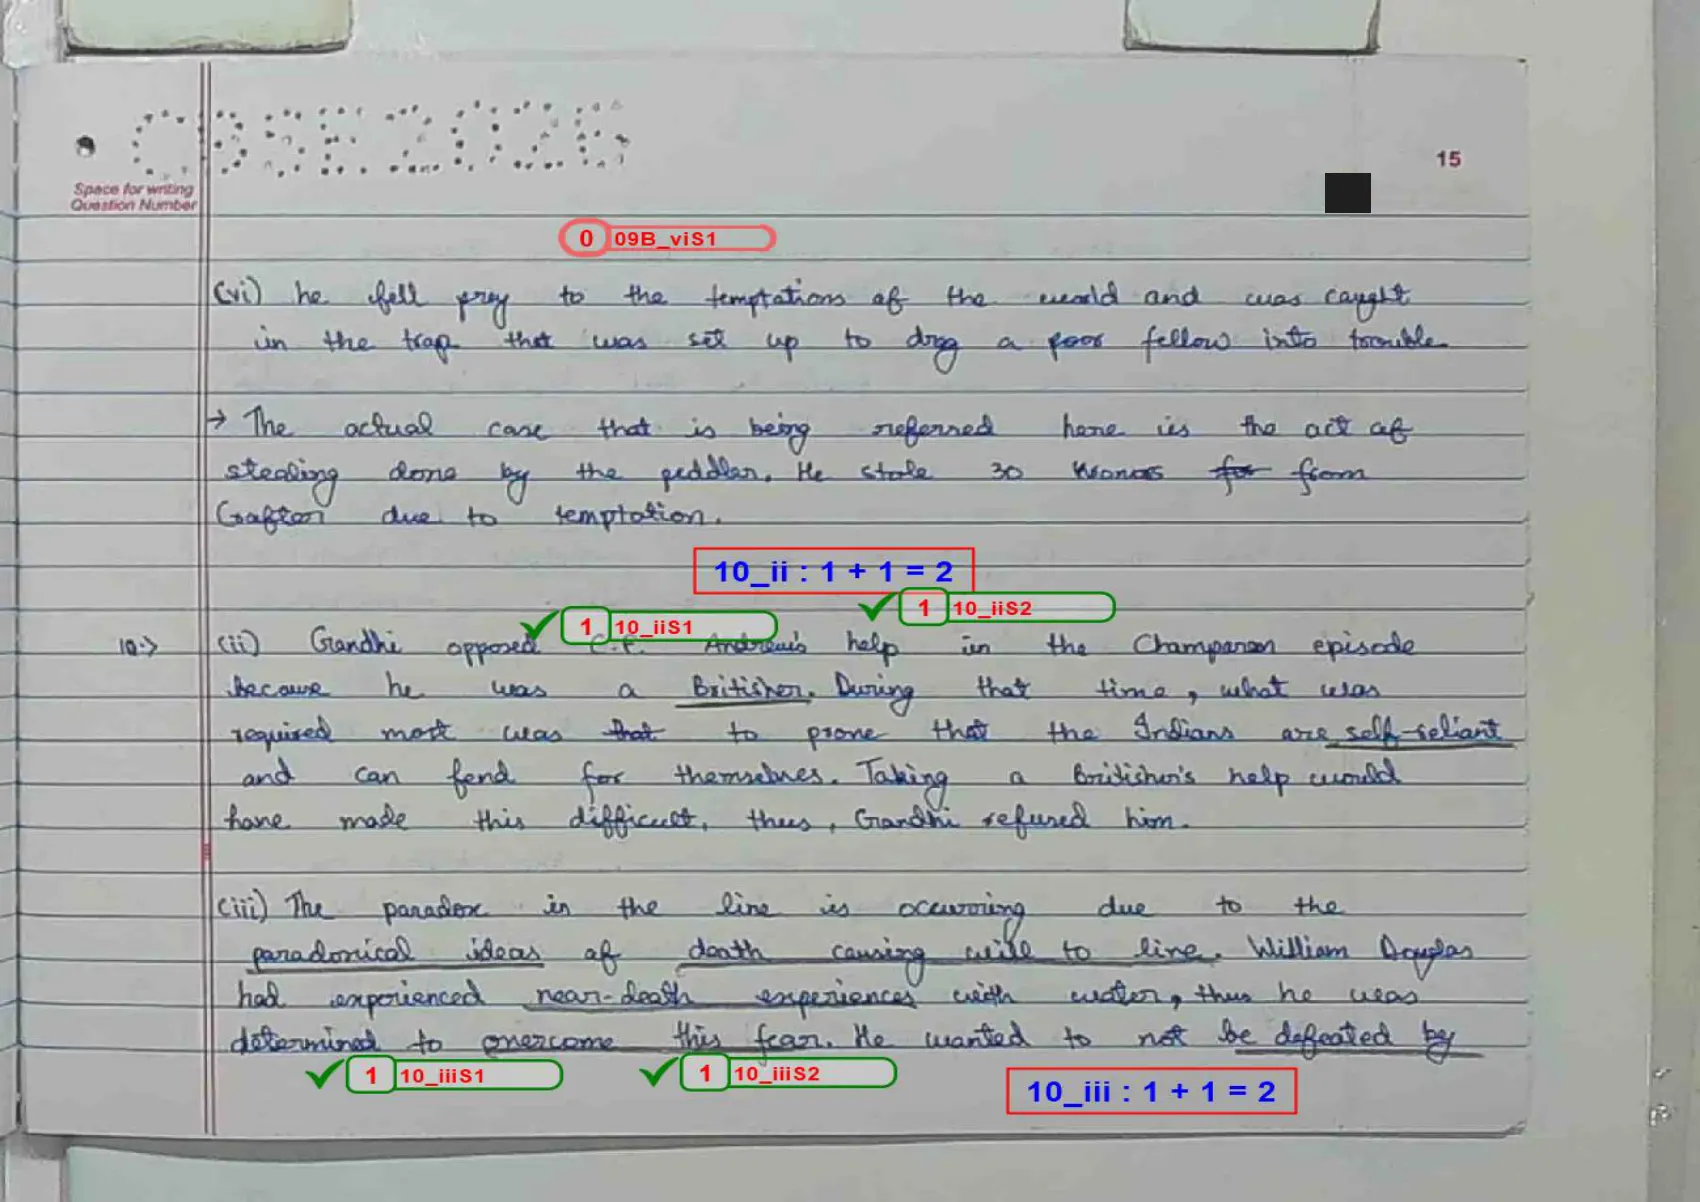 CBSE2026
15
Space for writing
Question Number
0 09B_viS1
(vi) he fell prey to the temptations of the world and was caught
in the trap that was set up to drag a poor fellow into trouble
→ The actual case that is being referred here is the act of
stealing done by the peddler. He stole 30 Kronors for from
Crafter due to temptation.
10_ii : 1 + 1 = 2
1 10_iiS1
1 10_iiS2
10.> (ii) Gandhi opposed C.F. Andrew's help in the Champaran episode
because he was a Britisher. During that time, what was
required most was that to prove that the Indians are self-reliant
and can fend for themselves. Taking a Britisher's help would
have made this difficult, thus, Gandhi refused him.
(iii) The paradox in the line is occurring due to the
paradoxical ideas of death causing will to live. William Douglas
had experienced near-death experiences with water, thus he was
determined to overcome this fear. He wanted to not be defeated by
1 10_iiiS1
1 10_iiiS2
10_iii : 1 + 1 = 2